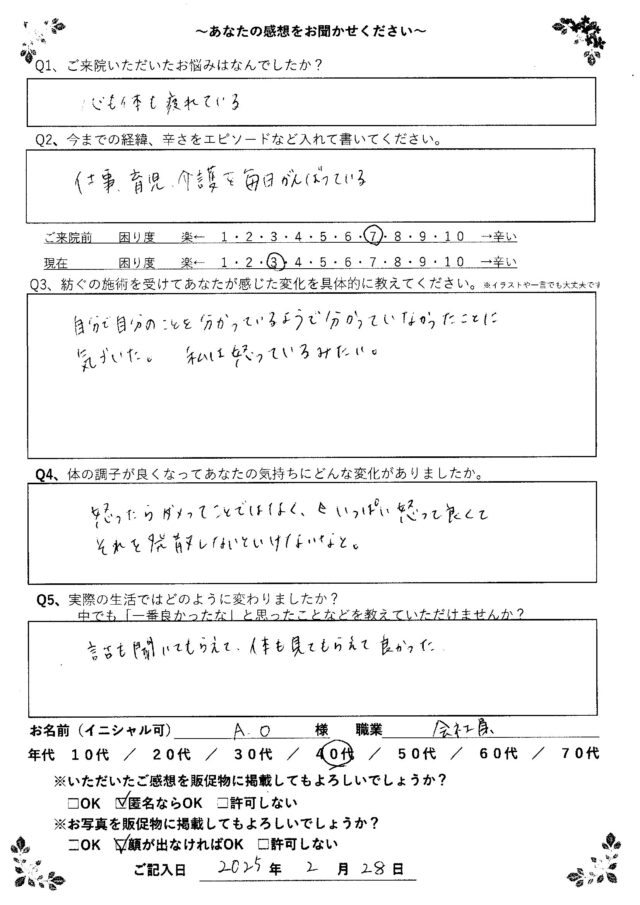 ～あなたの感想をお聞かせください～
Q1、ご来院いただいたお悩みはなんでしたか？
心も体も疲れている
Q2、今までの経緯、辛さをエピソードなど入れて書いてください。
仕事、育児、介護を毎日がんばっている
ご来院前　困り度　楽← 1・2・3・4・5・6・7・8・9・10 →辛い
現在　困り度　楽← 1・2・3・4・5・6・7・8・9・10 →辛い
Q3、紡ぐの施術を受けてあなたが感じた変化を具体的に教えてください。※イラストや一言でも大丈夫です
自分で自分のことを分かっているようで分かっていなかったことに
気づいた。　私は怒っているみたい。
Q4、体の調子が良くなってあなたの気持ちにどんな変化がありましたか。
怒ったらダメってことではなく、いっぱい怒って良くて
それを発散しないといけないなと。
Q5、実際の生活ではどのように変わりましたか？
中でも「一番良かったな」と思ったことなどを教えていただけませんか？
話も聞いてもらえて、体も見てもらえて良かった
お名前（イニシャル可）　A.O　様　職業　会社員
年代　10代　／　20代　／　30代　／　40代　／　50代　／　60代　／　70代
※いただいたご感想を販促物に掲載してもよろしいでしょうか？
□OK　☑匿名ならOK　□許可しない
※お写真を販促物に掲載してもよろしいでしょうか？
□OK　☑顔が出なければOK　□許可しない
ご記入日　2025年　2月28日